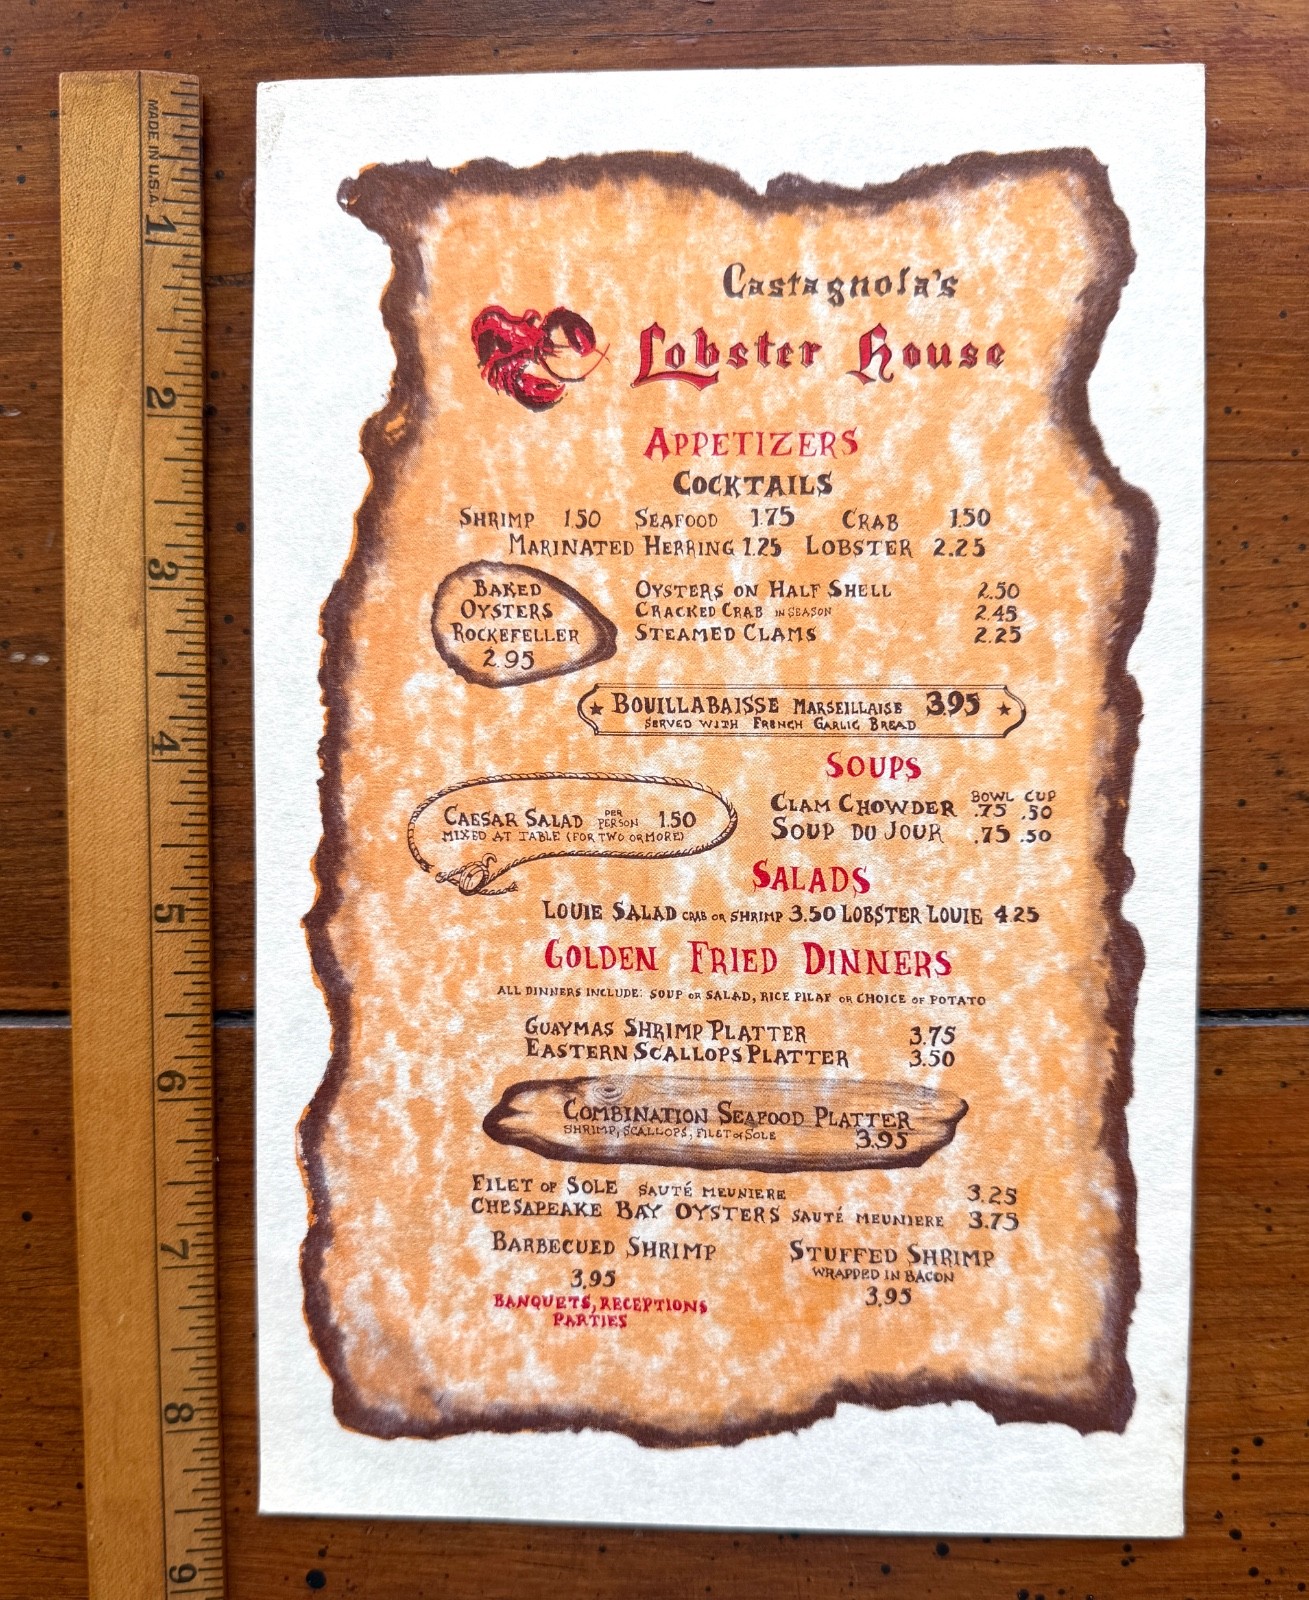 MADE IN U.S.A.
1
2
3
4
5
6
7
8
9
Castagnola's
Lobster House
APPETIZERS
COCKTAILS
SHRIMP 1.50 SEAFOOD 1.75 CRAB 1.50
MARINATED HERRING 1.25 LOBSTER 2.25
BAKED
OYSTERS
ROCKEFELLER
2.95
OYSTERS ON HALF SHELL 2.50
CRACKED CRAB IN SEASON 2.45
STEAMED CLAMS 2.25
★ BOUILLABAISSE MARSEILLAISE 3.95 ★
SERVED WITH FRENCH GARLIC BREAD
SOUPS
BOWL CUP
CLAM CHOWDER .75 .50
SOUP DU JOUR .75 .50
CAESAR SALAD PER PERSON 1.50
MIXED AT TABLE (FOR TWO OR MORE)
SALADS
LOUIE SALAD CRAB OR SHRIMP 3.50 LOBSTER LOUIE 4.25
GOLDEN FRIED DINNERS
ALL DINNERS INCLUDE: SOUP OR SALAD, RICE PILAF OR CHOICE OF POTATO
GUAYMAS SHRIMP PLATTER 3.75
EASTERN SCALLOPS PLATTER 3.50
COMBINATION SEAFOOD PLATTER
SHRIMP, SCALLOPS, FILET OF SOLE 3.95
FILET OF SOLE SAUTÉ MEUNIERE 3.25
CHESAPEAKE BAY OYSTERS SAUTÉ MEUNIERE 3.75
BARBECUED SHRIMP
3.95
STUFFED SHRIMP
WRAPPED IN BACON
3.95
BANQUETS, RECEPTIONS
PARTIES